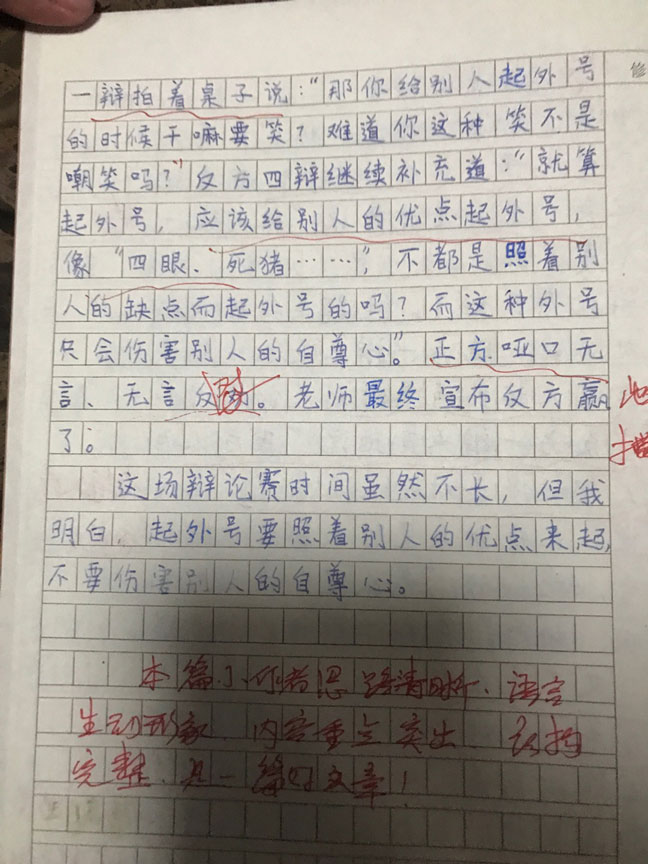 一辩拍着桌子说：“那你给别人起外号
的时候干嘛要笑？难道你这种笑不是
嘲笑吗？”反方四辩继续补充道：“就算
起外号，应该给别人的优点起外号，
像“四眼、死猪……”，不都是照着别
人的缺点而起外号的吗？而这种外号
只会伤害别人的自尊心。”正方哑口无
言、无言反。老师最终宣布反方赢
了。
这场辩论赛时间虽然不长，但我
明白，起外号要照着别人的优点来起，
不要伤害别人的自尊心。
本篇小作者思路清晰、语言
生动形象、内容重点突出、结构
完整，是一篇好文章！